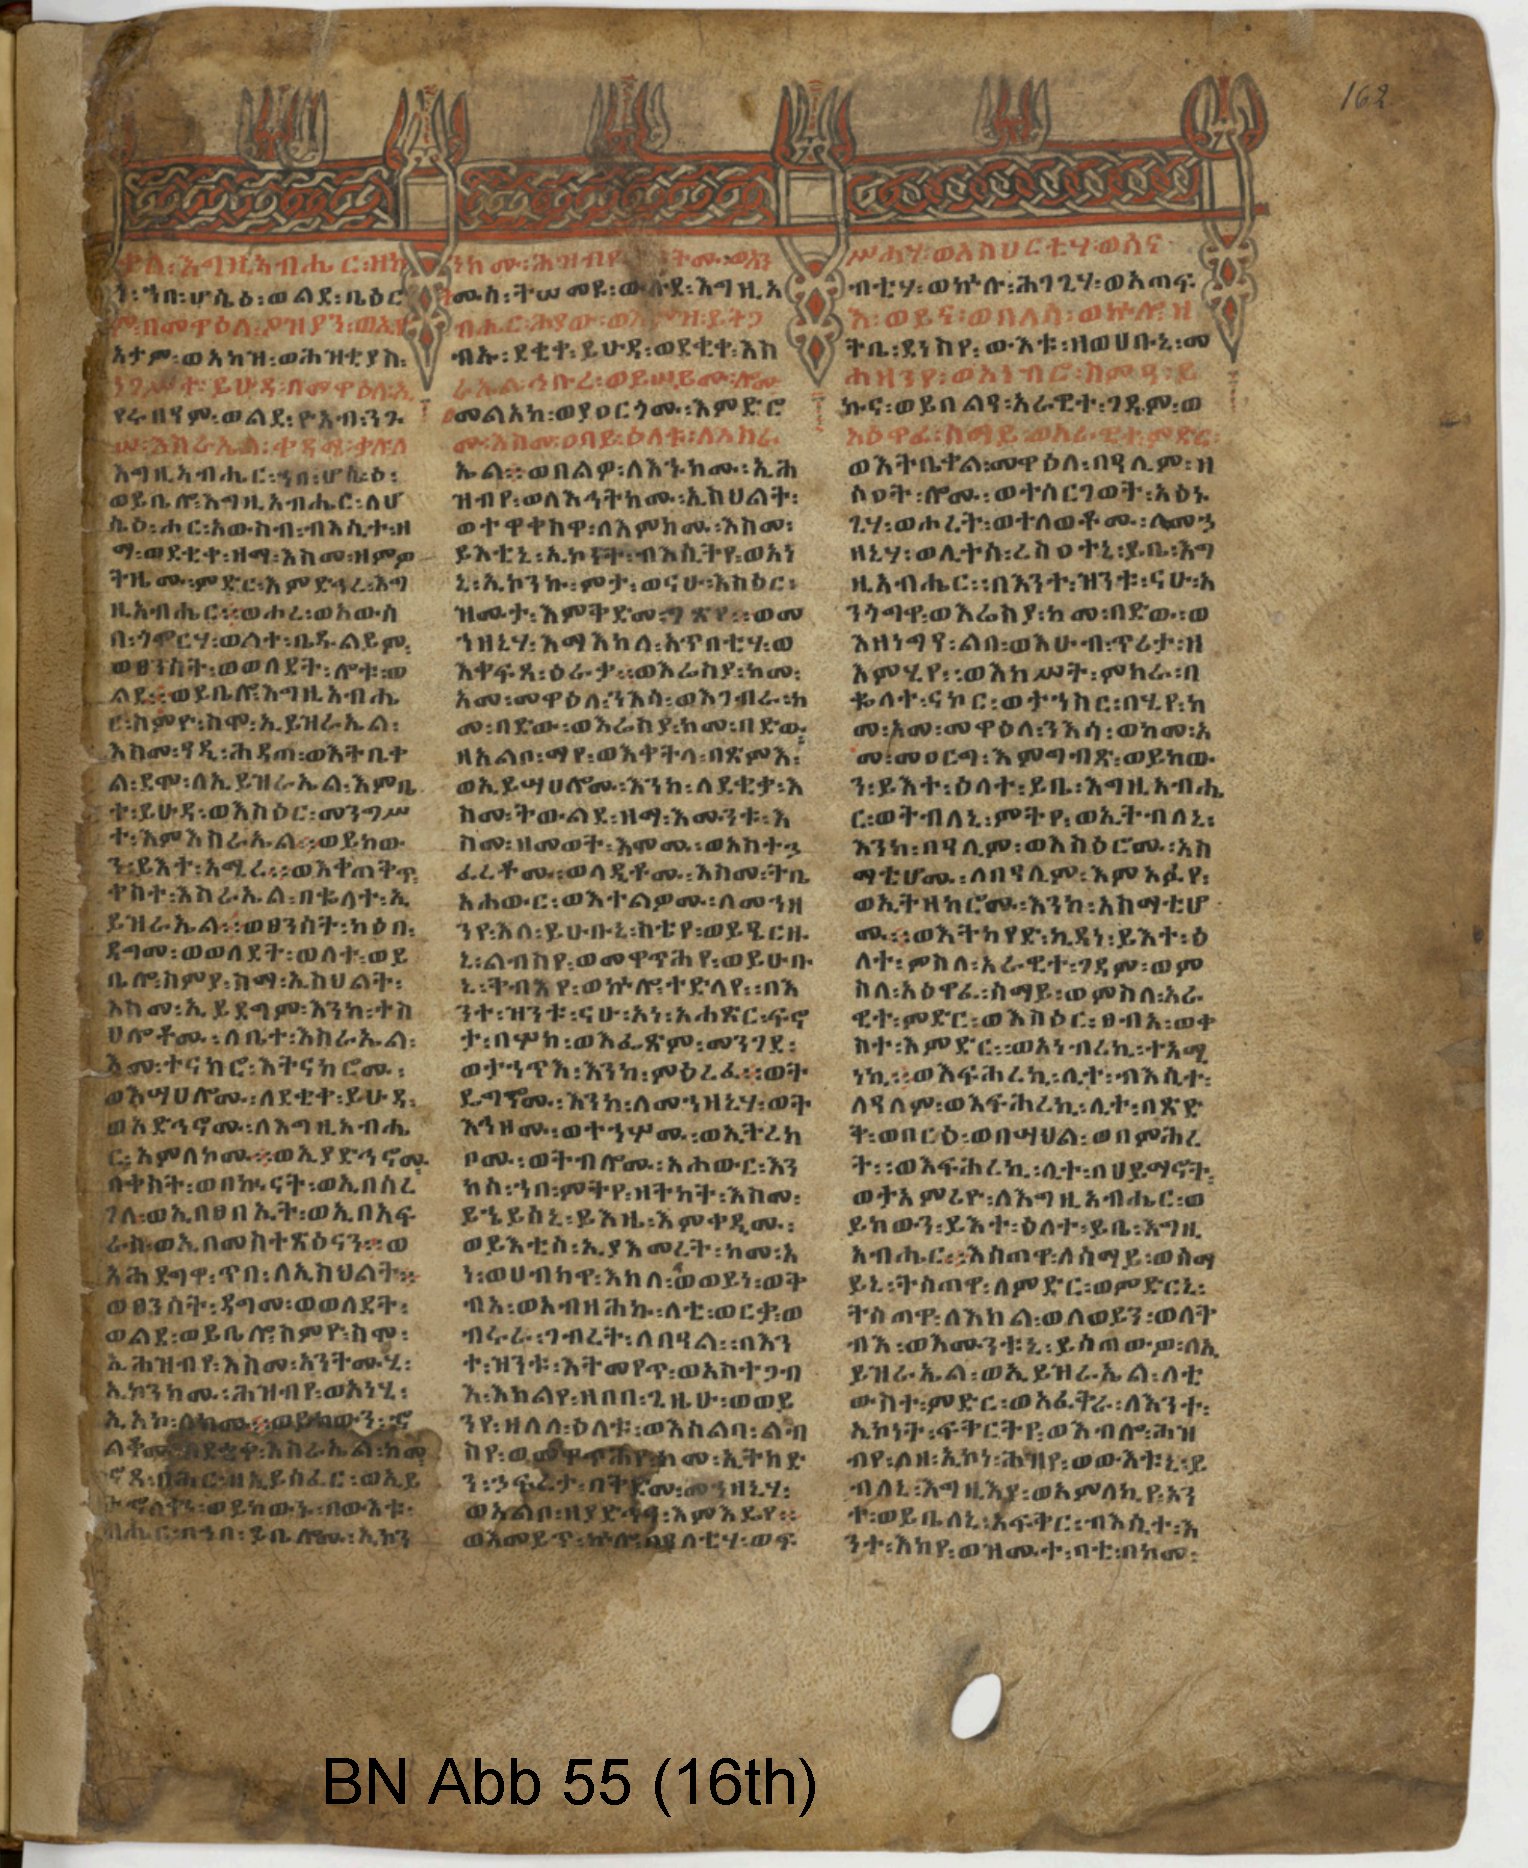 162
ቃለ፡እግዚአብሔር፡ዘኮ
ነ፡ኀበ፡ሆሴዕ፡ወልደ፡ቤዕር
ም፡በመዋዕለ፡ዖዝያን፡ወኢዮ
አታም፡ወአካዝ፡ወሕዝቂያስ፡
ነገሥተ፡ይሁዳ፡በመዋዕለ፡ኢ
የሩብዓም፡ወልደ፡ዮአብ፡ንጉ
ሠ፡እስራኤል፡ቀዳሜ፡ቃሉ፡ለ
እግዚአብሔር፡ኀበ፡ሆሴዕ፡
ወይቤሎ፡እግዚአብሔር፡ለሆ
ሴዕ፡ሑር፡አውስብ፡ብእሲተ፡ዘ
ማ፡ወደቂቀ፡ዘማ፡እስመ፡ዘምዎ
ትዜሙ፡ምድር፡እምድኅረ፡እግ
ዚአብሔር፡፡ወሖረ፡ወአውሰ
በ፡ጎሞርሃ፡ወለተ፡ቤዱልይም፡
ወፀንሰት፡ወወለደት፡ሎቱ፡ወ
ልደ፡፡ወይቤሎ፡እግዚአብሔ
ር፡ስምዮ፡ስሞ፡ኢይዝራኤል፡
እስመ፡ዓዲ፡ሕዳጠ፡ወእትቤቀ
ል፡ደሞ፡ለኢይዝራኤል፡እምቤ
ተ፡ይሁዳ፡ወእስዕር፡መንግሥ
ተ፡እምእስራኤል፡፡ወይከው
ን፡ይእተ፡አሚረ፡፡ወእቀጠቅጥ፡
ቀስተ፡እስራኤል፡በቈላተ፡ኢ
ይዝራኤል፡፡ወፀንሰት፡ካዕበ፡
ዳግመ፡ወወለደት፡ወለተ፡ወይ
ቤሎ፡ስምያ፡ስማ፡ኢስህልት፡
እስመ፡ኢይደግም፡እንከ፡ተሰ
ህሎቶሙ፡ለቤተ፡እስራኤል፡
እሙ፡ተናክሮ፡እትናከሮሙ፡
ወእሣህሎሙ፡ለደቂቀ፡ይሁዳ፡
ወአድኅኖሙ፡ለእግዚአብሔ
ር፡አምላኮሙ፡፡ወኢያድኅኖሙ
በቀስት፡ወበኲናት፡ወኢበሰረ
ገላ፡ወኢበፀብኢት፡ወኢበአፍ
ራስ፡ወኢበመስተጽዕናን፡፡ወ
አሕደገዋ፡ጥበ፡ለኢስህልት፡፡
ወፀንሰት፡ዳግመ፡ወወለደት፡
ወልደ፡ወይቤሎ፡ስምዮ፡ስሞ፡
ኢሕዝብየ፡እስመ፡አንትሙሂ፡
ኢኮንክሙ፡ሕዝብየ፡ወአነሂ፡
ኢአኮ፡ለክሙ፡፡ወይከውን፡ኆ
ልቆሙ፡ለደቂቀ፡እስራኤል፡ከመ
ኆጻ፡ባሕር፡ዘኢይሰፈር፡ወኢይ
ትኆለቍ፡ወይከውኑ፡በውእቱ፡
ብሔር፡በኀበ፡ይቤሎሙ፡ኢኮን
ክሙ፡ሕዝብየ፡
ሙስ፡ትሠመይ፡ውሉደ፡እግዚአ
ብሔር፡ሕያው፡
ብኡ፡ደቂቀ፡ይሁዳ፡ወደቂቀ፡እስ
ራኤል፡ኅቡረ፡ወይሠይሙ፡ሎሙ
መልአከ፡ወየዐርጉሙ፡እምድሮ
ሙ፡እስመ፡ዐባይ፡ዕለቱ፡ለእስራ
ኤል፡፡ወበልዎ፡ለእኁክሙ፡ኢሕ
ዝብየ፡ወለእኅትክሙ፡ኢስህልት፡
ወተዋቀስዋ፡ለእምክሙ፡እስመ፡
ይእቲኒ፡ኢኮነት፡ብእሲትየ፡ወአነ
ኒ፡ኢኮንኩ፡ምታ፡ወናሁ፡እስዕር፡
ዝሙታ፡እምቅድመ፡ገጽየ፡፡ወመ
ኀዘኒሃ፡እማእከለ፡አጥባቲሃ፡ወ
እቀፍጻ፡ዕራታ፡፡ወእሬስያ፡ከመ፡
አመ፡መዋዕለ፡ንእሳ፡ወእገብራ፡ከ
መ፡በድው፡ወእሬስያ፡ከመ፡በድው፡
ዘአልቦ፡ማየ፡ወእቀትላ፡በጽምእ፡
ወኢይሣህሎሙ፡እንከ፡ለደቂቃ፡እ
ስመ፡ትውልደ፡ዘማ፡እሙንቱ፡እ
ስመ፡ዘመወት፡እሞሙ፡ወአስተኃ
ፈረቶሙ፡ወላዲቶሙ፡እስመ፡ትቤ
አሐውር፡ወእተልዎሙ፡ለመኀዘ
ንየ፡እለ፡ይሁቡኒ፡ስቴየ፡ወይዔርዙ
ኒ፡ልብስየ፡ወመዋጥሕየ፡ወይሁቡ
ኒ፡ቅብእየ፡ወኵሎ፡ተድላየ፡፡በእ
ንተ፡ዝንቱ፡ናሁ፡አነ፡አሐጽር፡ፍኖ
ታ፡በሦክ፡ወእፈጽም፡መንገደ፡
ወታኀጥእ፡እንከ፡ምዕረፈ፡፡ወት
ዴግኖሙ፡እንከ፡ለመኀዘኒሃ፡ወት
እኅዞሙ፡ወተኀሦሙ፡ወኢትረክ
ቦሙ፡ወትብሎሙ፡አሐውር፡እን
ከሰ፡ኀበ፡ምትየ፡ዘትካት፡እስመ፡
ይኄይሰኒ፡ይእዜ፡እምቀዲሙ፡
ወይእቲሰ፡ኢያእመረት፡ከመ፡አ
ነ፡ወሀብክዋ፡እክለ፡ወወይነ፡ወቅ
ብአ፡ወአብዛሕኩ፡ላቲ፡ወርቃ፡ወ
ብሩራ፡ገብረት፡ለበዓል፡፡በእን
ተ፡ዝንቱ፡እትመየጥ፡ወአስተጋብ
እ፡እክልየ፡ዘበበ፡ጊዜሁ፡ወወይ
ንየ፡ዘለለ፡ዕለቱ፡ወእሰልባ፡ልብ
ስየ፡ወመዋጥሕየ፡ከመ፡ኢትክድ
ን፡ኃፍረታ፡በቅድመ፡መኀዘኒሃ፡
ወአልቦ፡ዘያድኅና፡እምእዴየ፡፡
ወእመይጥ፡ኵሎ፡በዓላቲሃ፡ወፍ
ሥሓሃ፡ወአስሀርቲሃ፡ወሰና
ብቲሃ፡ወኵሉ፡ሕገጊሃ፡ወአጠፍ
እ፡ወይና፡ወበለሳ፡ወኵሎ፡ዘ
ትቤ፡ደነስየ፡ውእቱ፡ዘወሀቡኒ፡መ
ሐዛንየ፡ወእነብሮ፡ከመዳ፡ይ
ኩኖ፡ወይበልዓ፡አራዊተ፡ገዳም፡ወ
አዕዋፈ፡ሰማይ፡ወአራዊተ፡ምድር፡
ወእትቤቀል፡መዋዕለ፡በዓሊም፡ዘ
ሶዐት፡ሎሙ፡ወተሰርገወት፡አዕኑ
ጊሃ፡ወሖረት፡ወተለወቶሙ፡ለመኃ
ዘኒሃ፡ወሊተሰ፡ረስዐተኒ፡ይቤ፡እግ
ዚአብሔር፡፡በእንተ፡ዝንቱ፡ናሁ፡አ
ንጎግዋ፡ወእሬስያ፡ከመ፡በድው፡፡ወ
እዘነግዓ፡ልባ፡ወእሁብ፡ጥሪታ፡ዘ
እምሂየ፡፡ወእከሥት፡ምክራ፡በ
ቈላተ፡ናኮር፡ወታኀስር፡በሂየ፡ከ
መ፡አመ፡መዋዕለ፡ንእሳ፡ወከመ፡አ
መ፡መዐርግ፡እምግብጽ፡ወይከው
ን፡ይእተ፡ዕለተ፡ይቤ፡እግዚአብሔ
ር፡ወትብለኒ፡ምትየ፡ወኢትብለኒ፡
እንከ፡በዓሊም፡ወእስዕሮሙ፡አስ
ማቲሆሙ፡ለበዓሊም፡እምአፈየ፡
ወኢትዘከሮሙ፡እንከ፡አስማቲሆ
ሙ፡፡ወእትካየድ፡ኪዳነ፡ይእተ፡ዕ
ለተ፡ምስለ፡አራዊተ፡ገዳም፡ወም
ስለ፡አዕዋፈ፡ሰማይ፡ወምስለ፡አራ
ዊተ፡ምድር፡ወእስዕር፡ፀብአ፡ወቀ
ስተ፡እምድር፡፡ወአነብረኪ፡ተአሚ
ነኪ፡፡ወእፍሕረኪ፡ሊተ፡ብእሲተ፡
ለዓለም፡ወእፍሕረኪ፡ሊተ፡በጽድ
ቅ፡ወበርዕ፡ወበሣህል፡ወበምሕረ
ት፡፡ወእፍሕረኪ፡ሊተ፡በሀይማኖት፡
ወታአምሪዮ፡ለእግዚአብሔር፡ወ
ይከውን፡ይእተ፡ዕለተ፡ይቤ፡እግዚ
አብሔር፡፡እሰጠዋ፡ለሰማይ፡ወሰማ
ይኒ፡ትሰጠዋ፡ለምድር፡ወምድርኒ፡
ትሰጠዋ፡ለእክል፡ወለወይን፡ወለቅ
ብእ፡ወእሙንቱኒ፡ይሰጠውዎ፡ለኢ
ይዝራኤል፡ወኢይዝራኤል፡ለቲ
ውስተ፡ምድር፡ወአፈቅራ፡ለእንተ፡
ኢኮነት፡ፍቅርትየ፡ወእብሎ፡ሕዝ
ብየ፡ለዘ፡ኢኮነ፡ሕዝየ፡ወውእቱኒ፡ይ
ብለኒ፡እግዚእየ፡ወአምላኪየ፡አን
ተ፡ወይቤለኒ፡አፍቅር፡ብእሲተ፡እ
ንተ፡እከየ፡ወዝሙተ፡ባቲ፡በከመ፡
BN Abb 55 (16th)